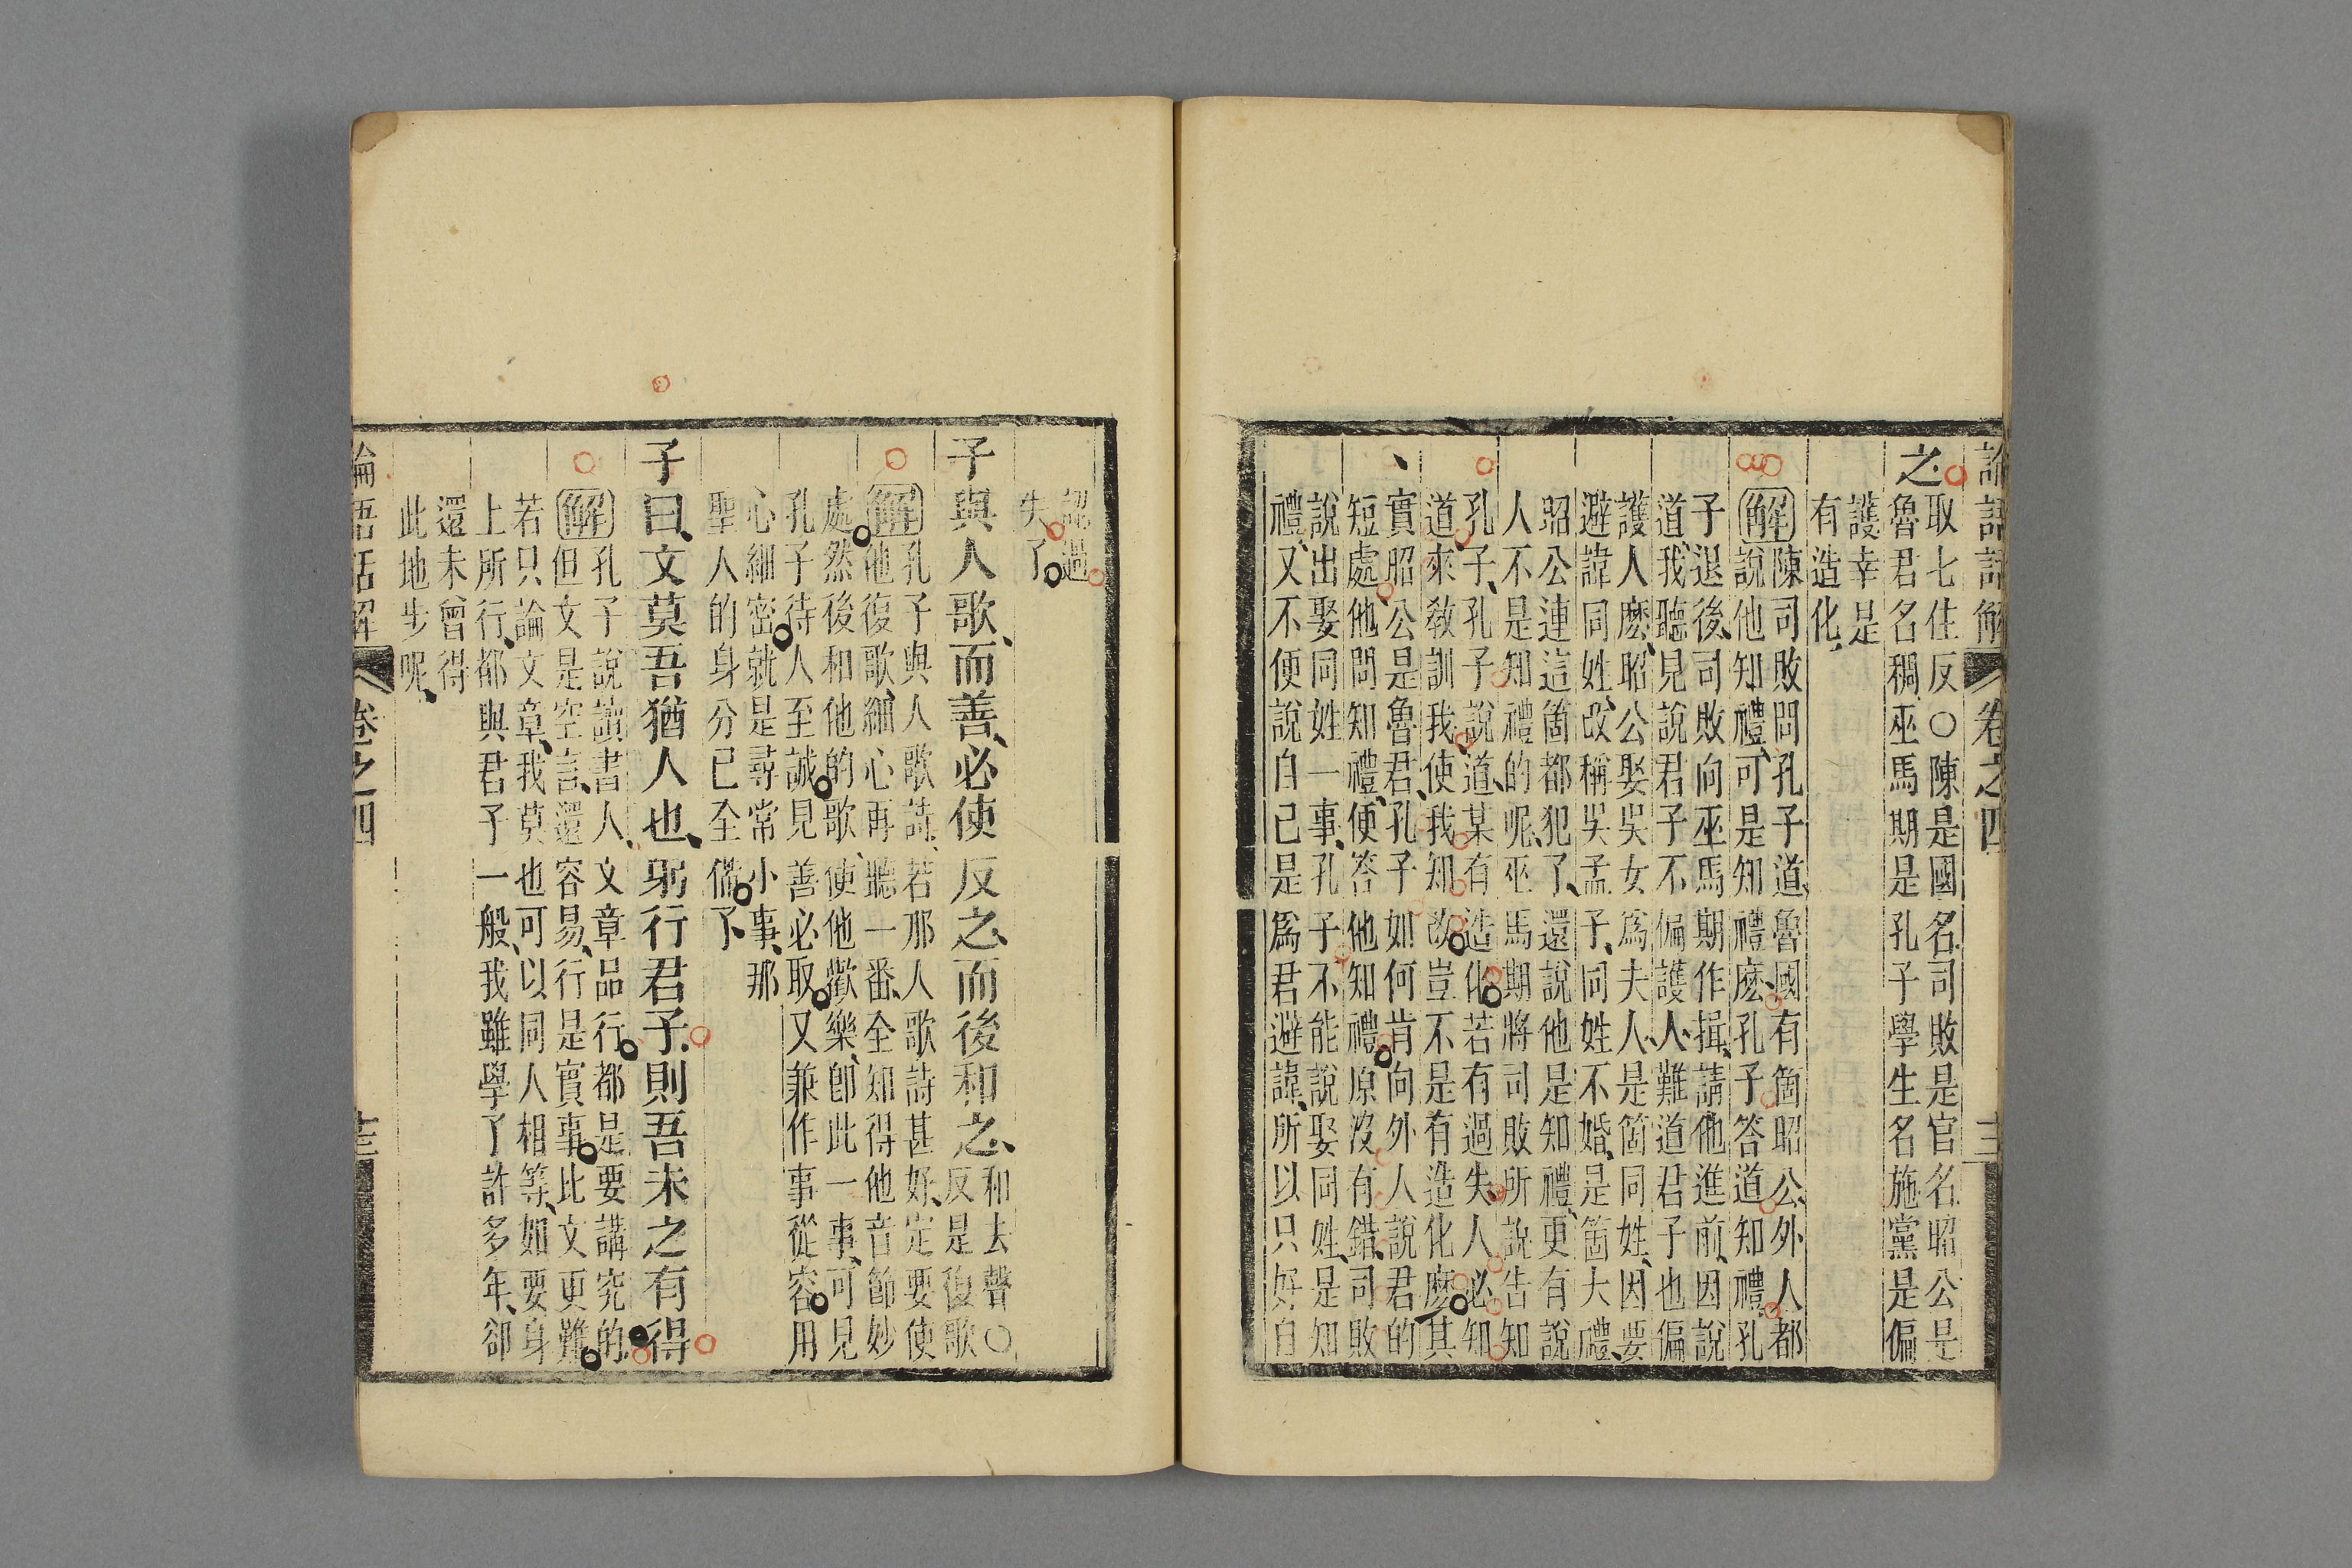 論語話解 卷之四 十三
之
取七住反○陳是國名司敗是官名昭公是
魯君名稠巫馬期是孔子學生名施黨是偏
護幸是
有造化
解
陳司敗問孔子道魯國有箇昭公外人都
說他知禮可是知禮麽孔子答道知禮孔
子退後司敗向巫馬期作揖請他進前因說
道我聽見說君子不偏護人難道君子也偏
護人麽昭公娶吳女爲夫人是箇同姓因要
避諱同姓改稱吳孟子同姓不婚是箇大禮
昭公連這箇都犯了還說他是知禮更有說
人不是知禮的呢巫馬期將司敗所說告知
孔子孔子說道某有造化若有過失人必知
道來敎訓我使我知改豈不是有造化麽其
實昭公是魯君孔子如何肯向外人說君的
短處他問知禮便答他知禮原沒有錯司敗
說出娶同姓一事孔子不能說娶同姓是知
禮又不便說自已是爲君避諱所以只好自
認過
失了
子與人歌而善必使反之而後和之
和去聲○
反是復歌
解
孔子與人歌詩若那人歌詩甚好定要使
他復歌細心再聽一番全知得他音節妙
處然後和他的歌使他歡樂卽此一事可見
孔子待人至誠見善必取又兼作事從容用
心細密就是尋常小事那
聖人的身分已全備下
子曰文莫吾猶人也躬行君子則吾未之有得
解
孔子說讀書人文章品行都是要講究的
但文是空言還容易行是實事比文更難
若只論文章我莫也可以同人相等如要身
上所行都與君子一般我雖學了許多年卻
還未曾得
此地步呢
論語話解 卷之四 十三